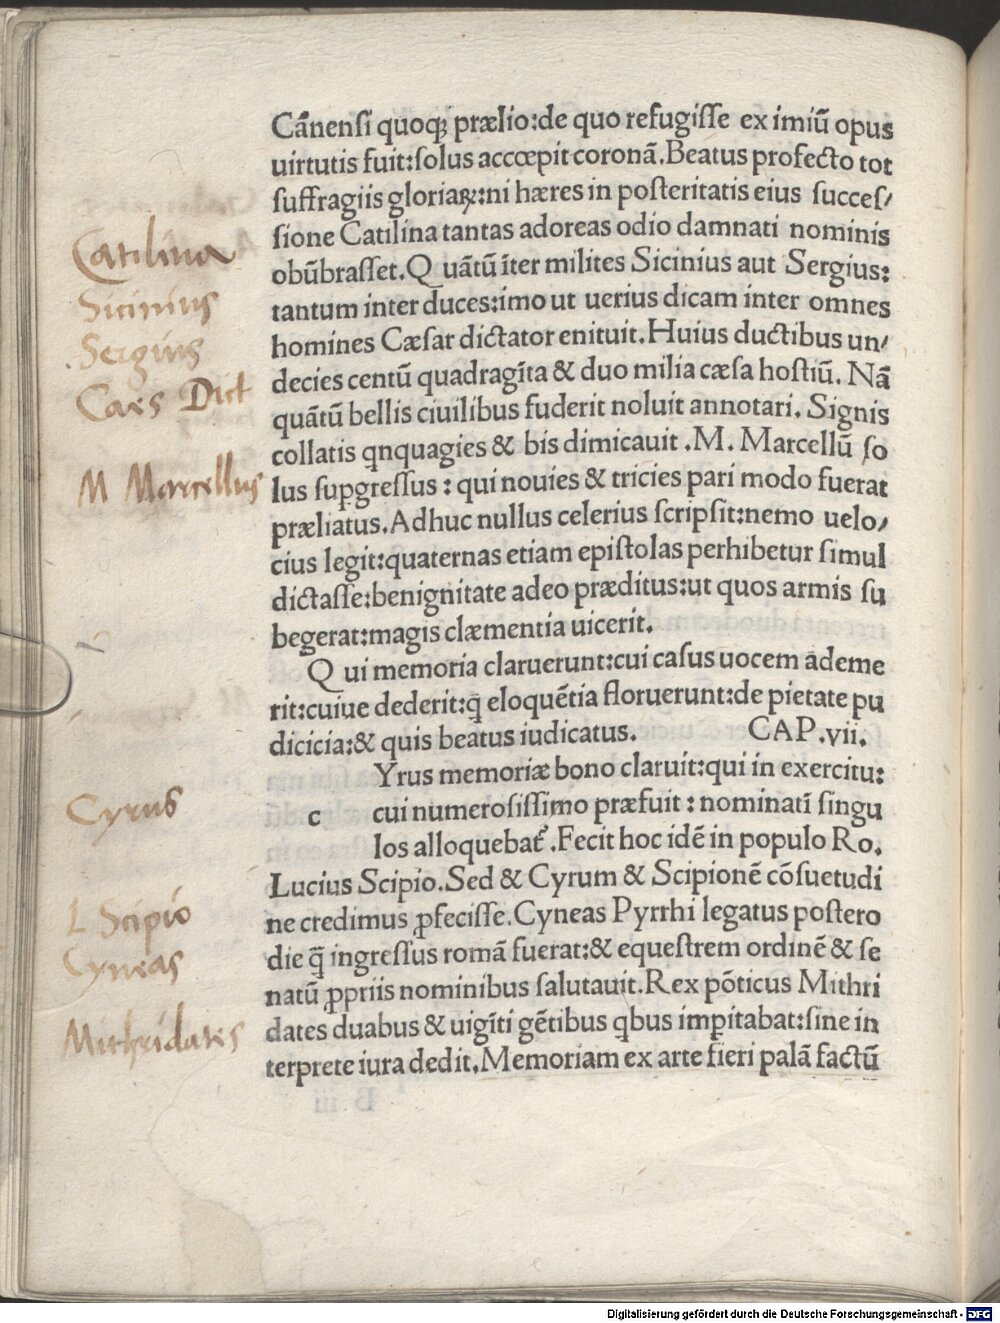 Cãnenſi quoqꝫ prælio:de quo refugiſſe ex imiũ opus
uirtutis fuit:ſolus accœpit coronã.Beatus profecto tot
ſuffragiis gloriaꝝ:ni hæres in poſteritatis eius ſucceſ/
ſione Catilina tantas adoreas odio damnati nominis
obũbraſſet.Q uãtũ ĩter milites Sicinius aut Sergius:
tantum inter duces:imo ut uerius dicam inter omnes
homines Cæſar dictator enituit.Huius ductibus un/
decies centũ quadragĩta & duo milia cæſa hoſtiũ. Nã
quãtũ bellis ciuilibus fuderit noluit annotari. Signis
collatis qnquagies & bis dimicauit .M. Marcellũ ſo
lus ſuꝑgreſſus : qui nouies & tricies pari modo fuerat
præliatus.Adhuc nullus celerius ſcripſit:nemo uelo/
cius legit:quaternas etiam epiſtolas perhibetur ſimul
dictaſſe:benignitate adeo præditus:ut quos armis ſu
begerat:magis clæmentia uicerit.
Q ui memoria claruerunt:cui caſus uocem ademe
rit:cuiue dederit:q̃ eloquẽtia floruerunt:de pietate pu
dicicia:& quis beatus iudicatus. CAP.vii.
Yrus memoriæ bono claruit:qui in exercitu:
c cui numeroſiſſimo præfuit : nominatĩ ſingu
los alloquebat᷑ .Fecit hoc idẽ in populo Ro.
Lucius Scipio.Sed & Cyrum & Scipionẽ cõſuetudi
ne credimus ꝓfeciſſe.Cyneas Pyrrhi legatus poſtero
die q̃ ingreſſus romã fuerat:& equeſtrem ordinẽ & ſe
natũ ꝓpriis nominibus ſalutauit.Rex põticus Mithri
dates duabus & uigĩti gẽtibus qbus imꝑitabat:ſine in
terprete iura dedit.Memoriam ex arte fieri palã factũ
Catilina
Sicinius
Sergius
Caes Dict
M Marcellus
Cyrus
L Scipio
Cyneas
Mithridates
Digitalisierung gefördert durch die Deutsche Forschungsgemeinschaft - DFG